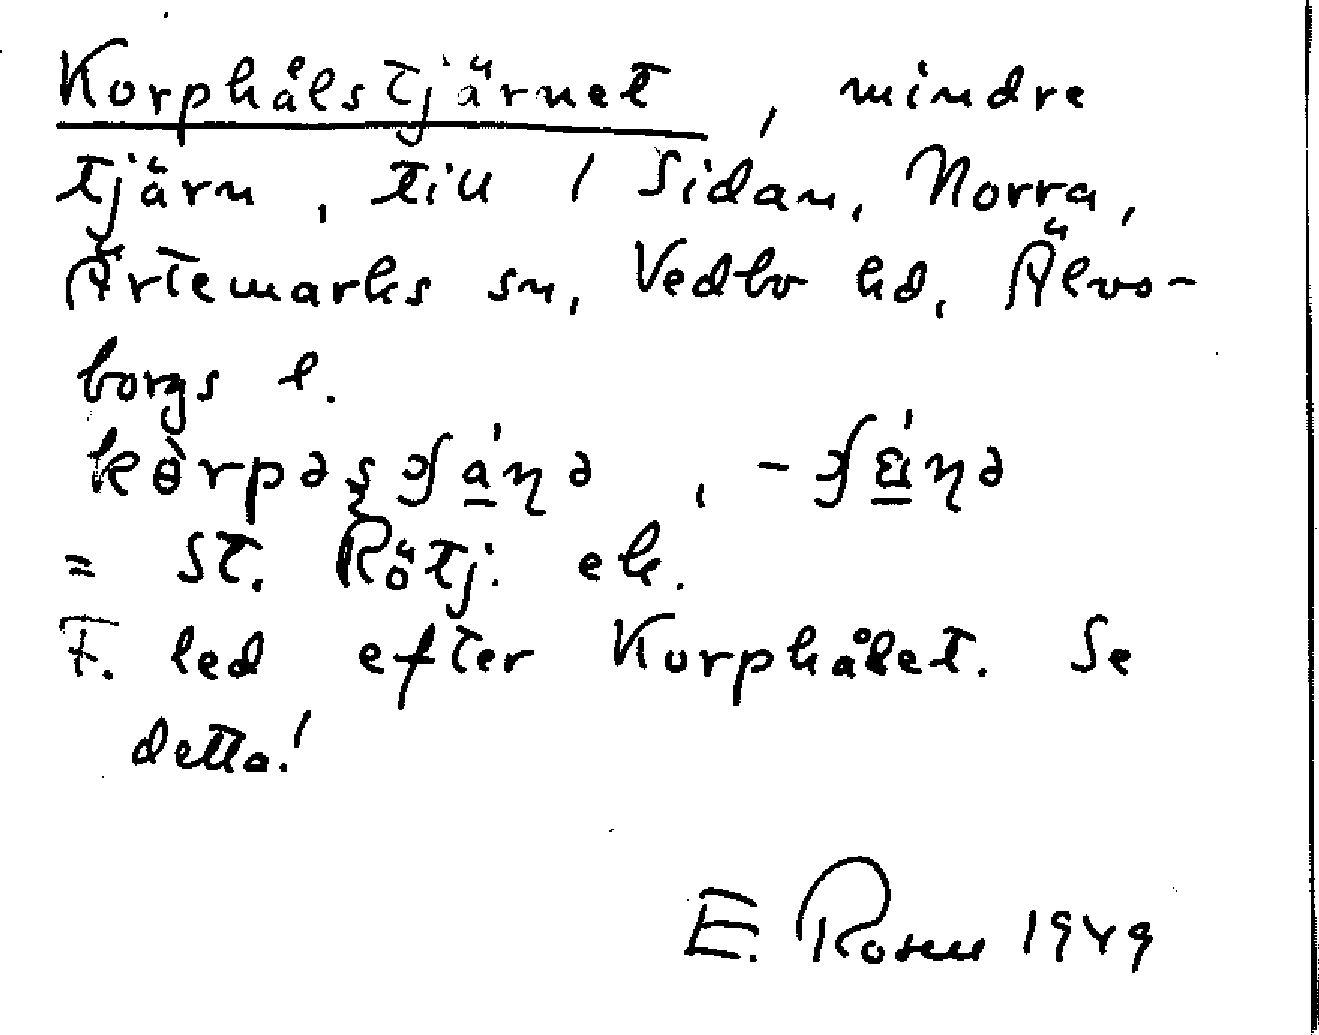 Korphålstjärnet, mindre
tjärn, till 1 Sidan, Norra,
Ärtemarks sn, Vedbo hd, Älvs-
borgs l.
= St. Rötj. ek.
F. led efter Korphålet. Se
detta!
E. Rosen 1949